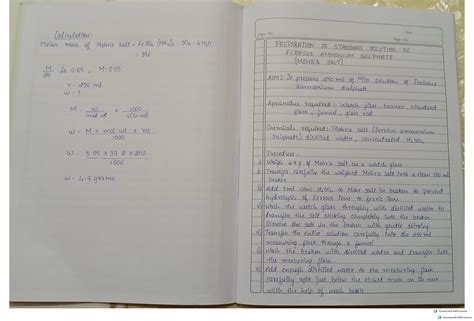 Calculation:
Molar mass of Mohr's salt = FeSO4 (NH4)2 SO4 6H2O
= 392
M/20 is 0.05, M = 0.05
V = 250 ml
W = ?
M = W / mol wt × 1000 / V (in ml)
W = M × mol wt × vol / 1000
W = 0.05 × 392 × 250 / 1000
W = 4.9 grams
Date
Expt. No.
Page No.
PREPARATION OF STANDARD SOLUTION OF
FERROUS AMMONIUM SULPHATE
(MOHR'S SALT)
AIM: To prepare 250 ml of M/20 solution of Ferrous
ammonium sulphate
Apparatus required: Watch glass, beaker, standard
flask, funnel, glass rod
Chemicals required: Mohr's salt (ferrous ammonium
sulphate) distilled water, concentrated H2SO4
Procedure:
Weigh 4.9 g of Mohr's salt on a watch glass
Transfer carefully the weighed Mohr's salt into a clean 250 ml
beaker
Add 5ml conc H2SO4 to Mohr salt in beaker to prevent
hydrolysis of ferrous ions to ferric ions
Wash the watch glass throughly with distilled water to
transfer the salt sticking completely into the beaker
Dissolve the salt in the beaker with gentle stirring
Transfer the entire solution carefully into the 250 ml
measuring flask through a funnel
Wash the beaker with distilled water and transfer into
the measuring flask
Add enough distilled water to the measuring flask
carefully upto just below the etched mark on its
neck with the help of wash bottle